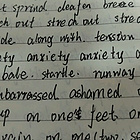 sprind deafen breeze
ch out stread out stre
de along with. tension
ety anxiety anxiety a
bale. startle. runway
mbarrassed ashamed
up on one's feet